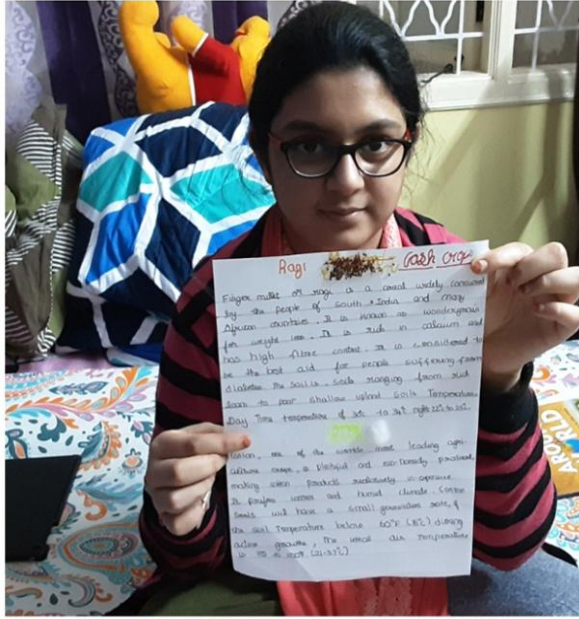 Ragi
Cash crop
Finger millet or ragi is a cereal widely consumed
by the people of South India and many
African countries. It is known as wonderful
for weight loss. It is rich in calcium and
has high fibre content. It is considered to
be the best aid for people suffering from
diabetes. The soil is soils ranging from rich
loam to poor shallow upland soils Temperature
Day Time temperature of to night
Cotton, one of the world's most leading agri-
culture crops, is plentiful and economically produced,
making cotton products relatively in-expensive.
It prefers and humid climate. Cotton
seeds will have a small germination rate, if
the soil Temperature below 60°F during
active growth, The air temperature
is
AROUND
WORLD